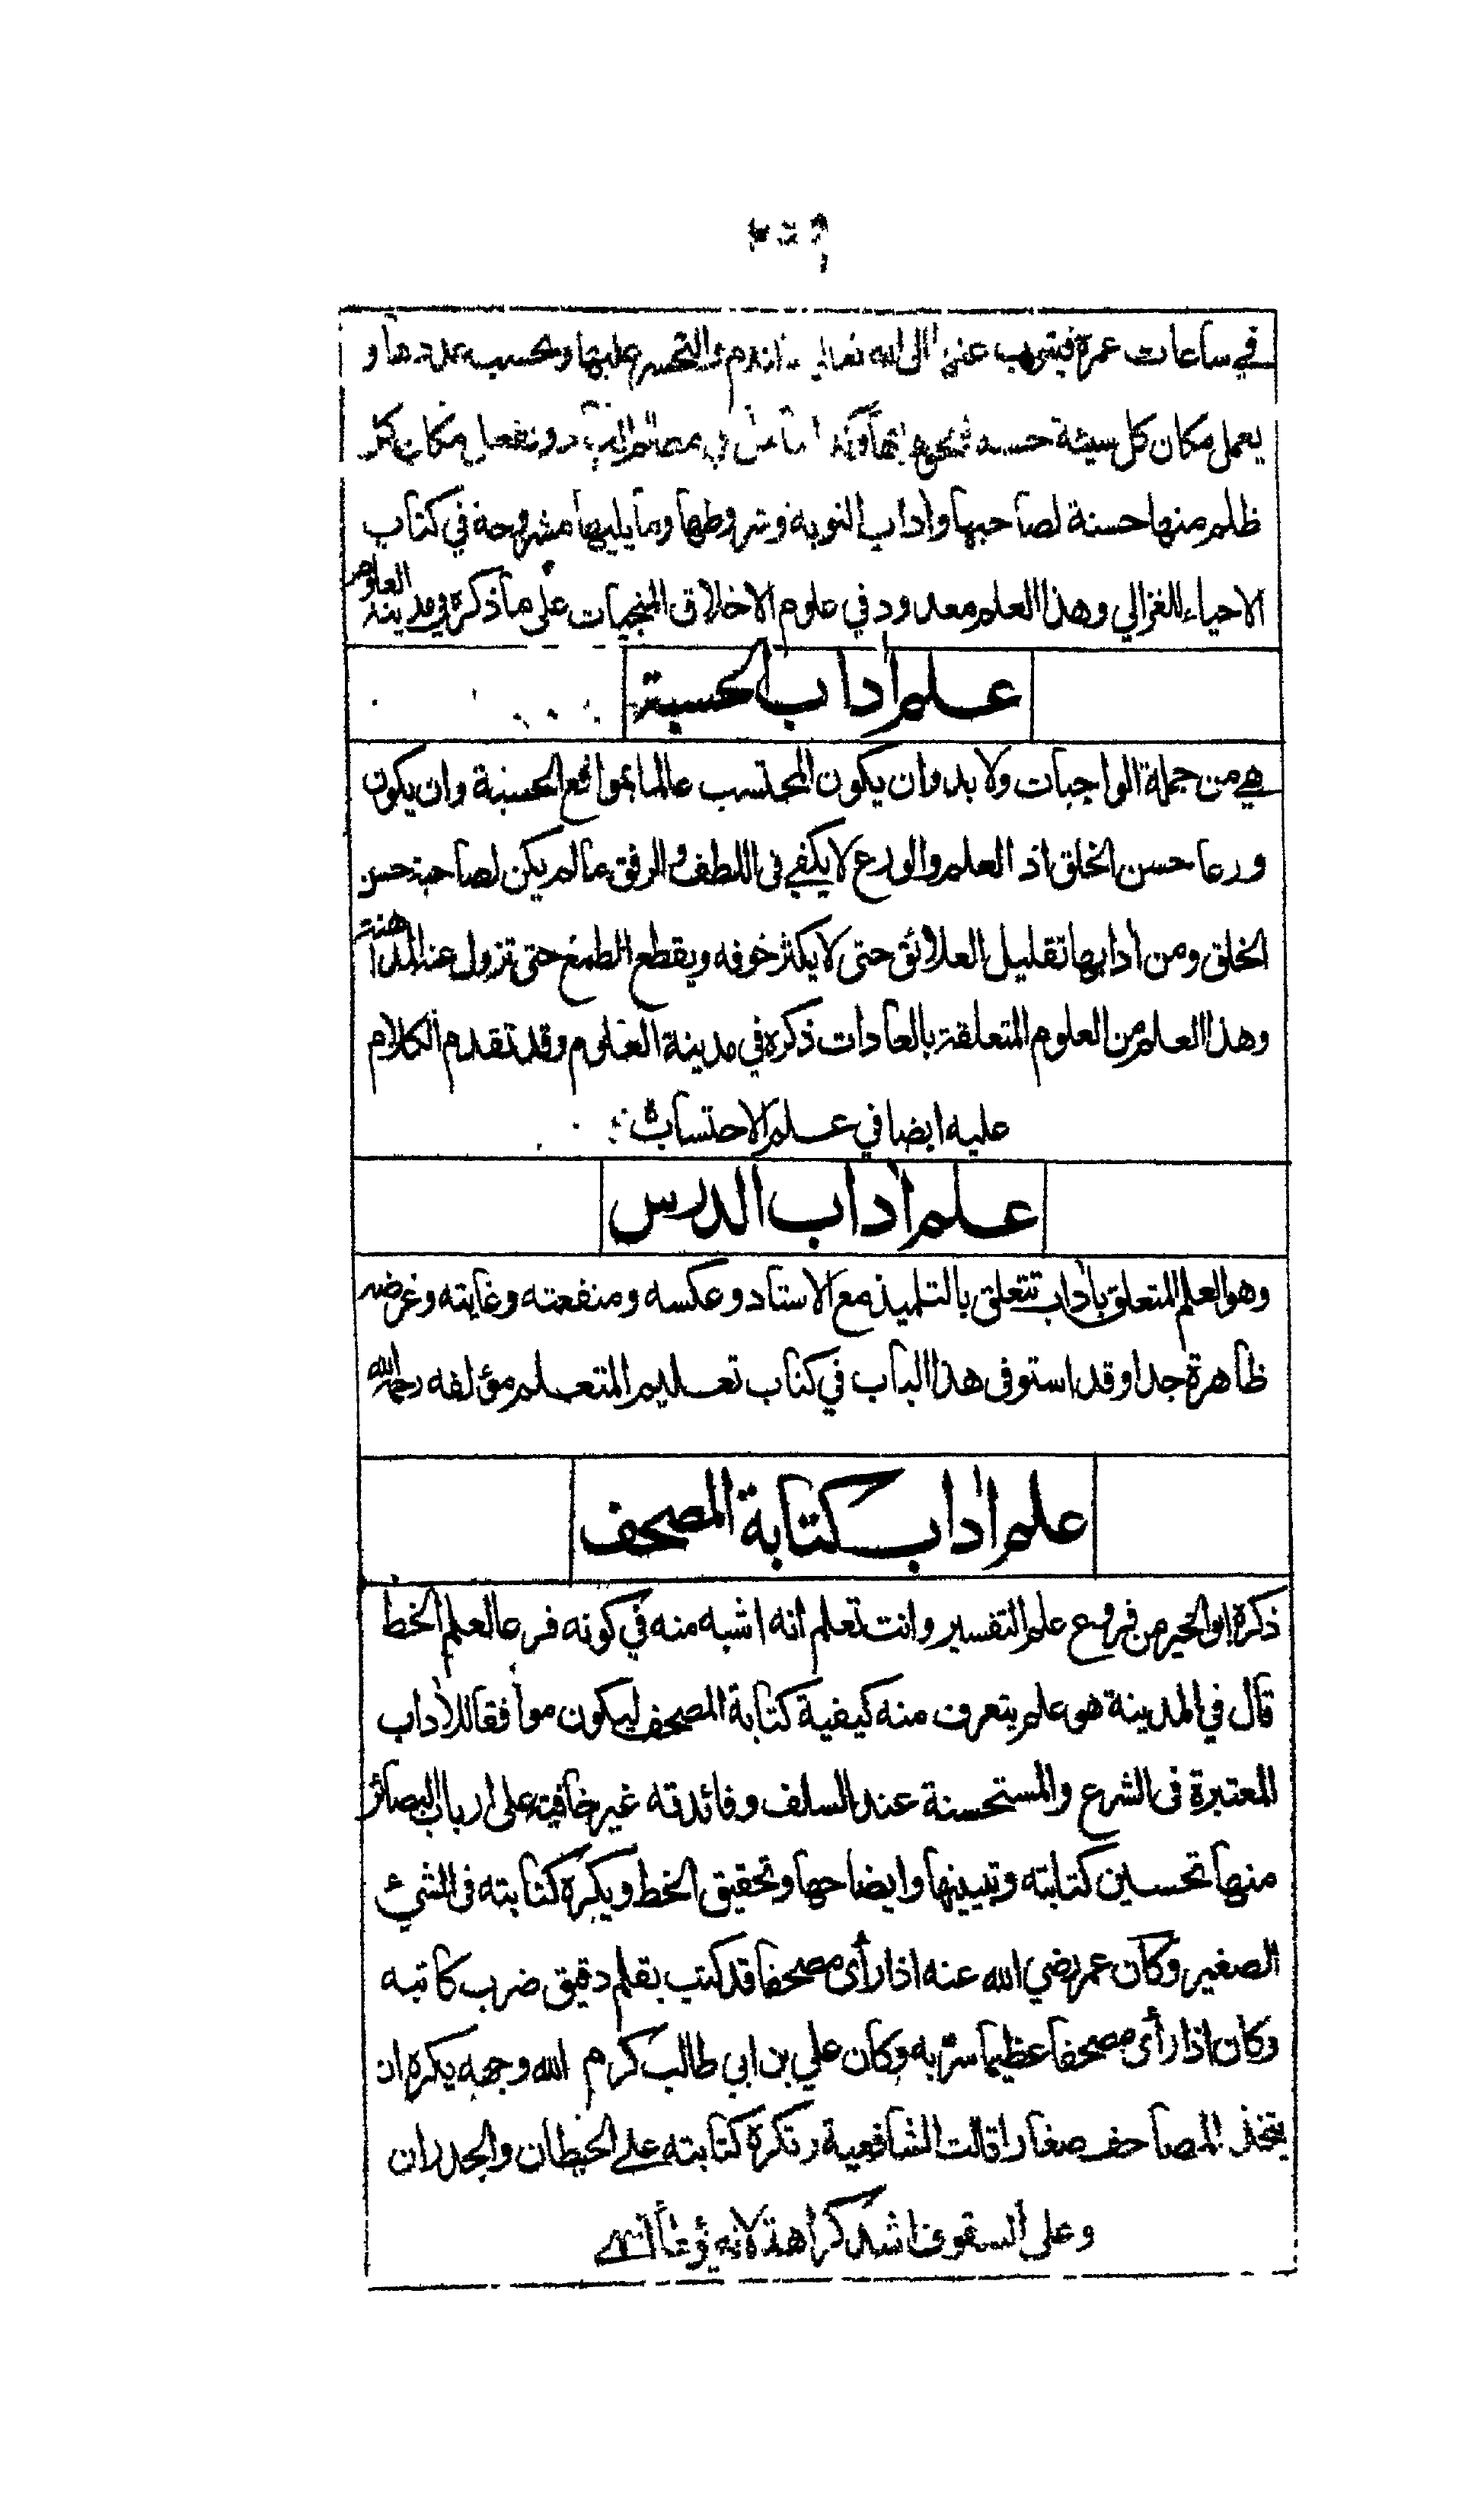 في ساعات عمره فيتوب عنها الى الله تعالى بالندم والتحسر عليها ويحسب عددها و
يعمل مكان كل سيئة حسنة
ظلم منها حسنة لصاحبها واداب التوبة وشروطها وما يليها مشروحة في كتاب
الاحياء للغزالي وهذا العلم معدود في علوم الاخلاق المنجيات على ما ذكره في مدينة العلوم
علم اداب الحسبة
هي من جملة الواجبات ولا بد وان يكون المحتسب عالما بمواقع الحسبة وان يكون
ورعا حسن الخلق اذ العلم والورع لا يكفي في اللطف والرفق ما لم يكن لصاحبه حسن
الخلق ومن ادابها تقليل العلائق حتى لا يكثر خوفه ويقطع الطمع حتى تزول عنه المداهنة
وهذا العلم من العلوم المتعلقة بالعادات ذكره في مدينة العلوم وقد تقدم الكلام
عليه ايضا في علم الاحتساب
علم اداب الدرس
وهو العلم المتعلق باداب تتعلق بالتلميذ مع الاستاد وعكسه ومنفعته وغايته وغرضه
ظاهرة جدا وقد استوفى هذا الباب في كتاب تعليم المتعلم مؤلفه رحمه الله
علم اداب كتابة المصحف
ذكره ابو الخير من فروع علم التفسير وانت تعلم انه اشبه منه في كونه فرعا لعلم الخط
قال في المدينة هو علم يتعرف منه كيفية كتابة المصحف ليكون موافقا للاداب
المعتبرة في الشرع والمستحسنة عند السلف وفائدته غير خافية على ارباب البصائر
منها تحسين كتابته وتبيينها وايضاحها وتحقيق الخط ويكره كتابته في الشيء
الصغير وكان عمر رضي الله عنه اذا رأى مصحفا قد كتب بقلم دقيق ضرب كاتبه
وكان اذا رأى مصحفا عظيما سر به وكان علي بن ابي طالب كرم الله وجهه يكره ان
يتخذ المصاحف صغارا قالت الشافعية وتكره كتابته على الحيطان والجدران
وعلى السقوف اشد كراهة لانه يؤطأ انتهى